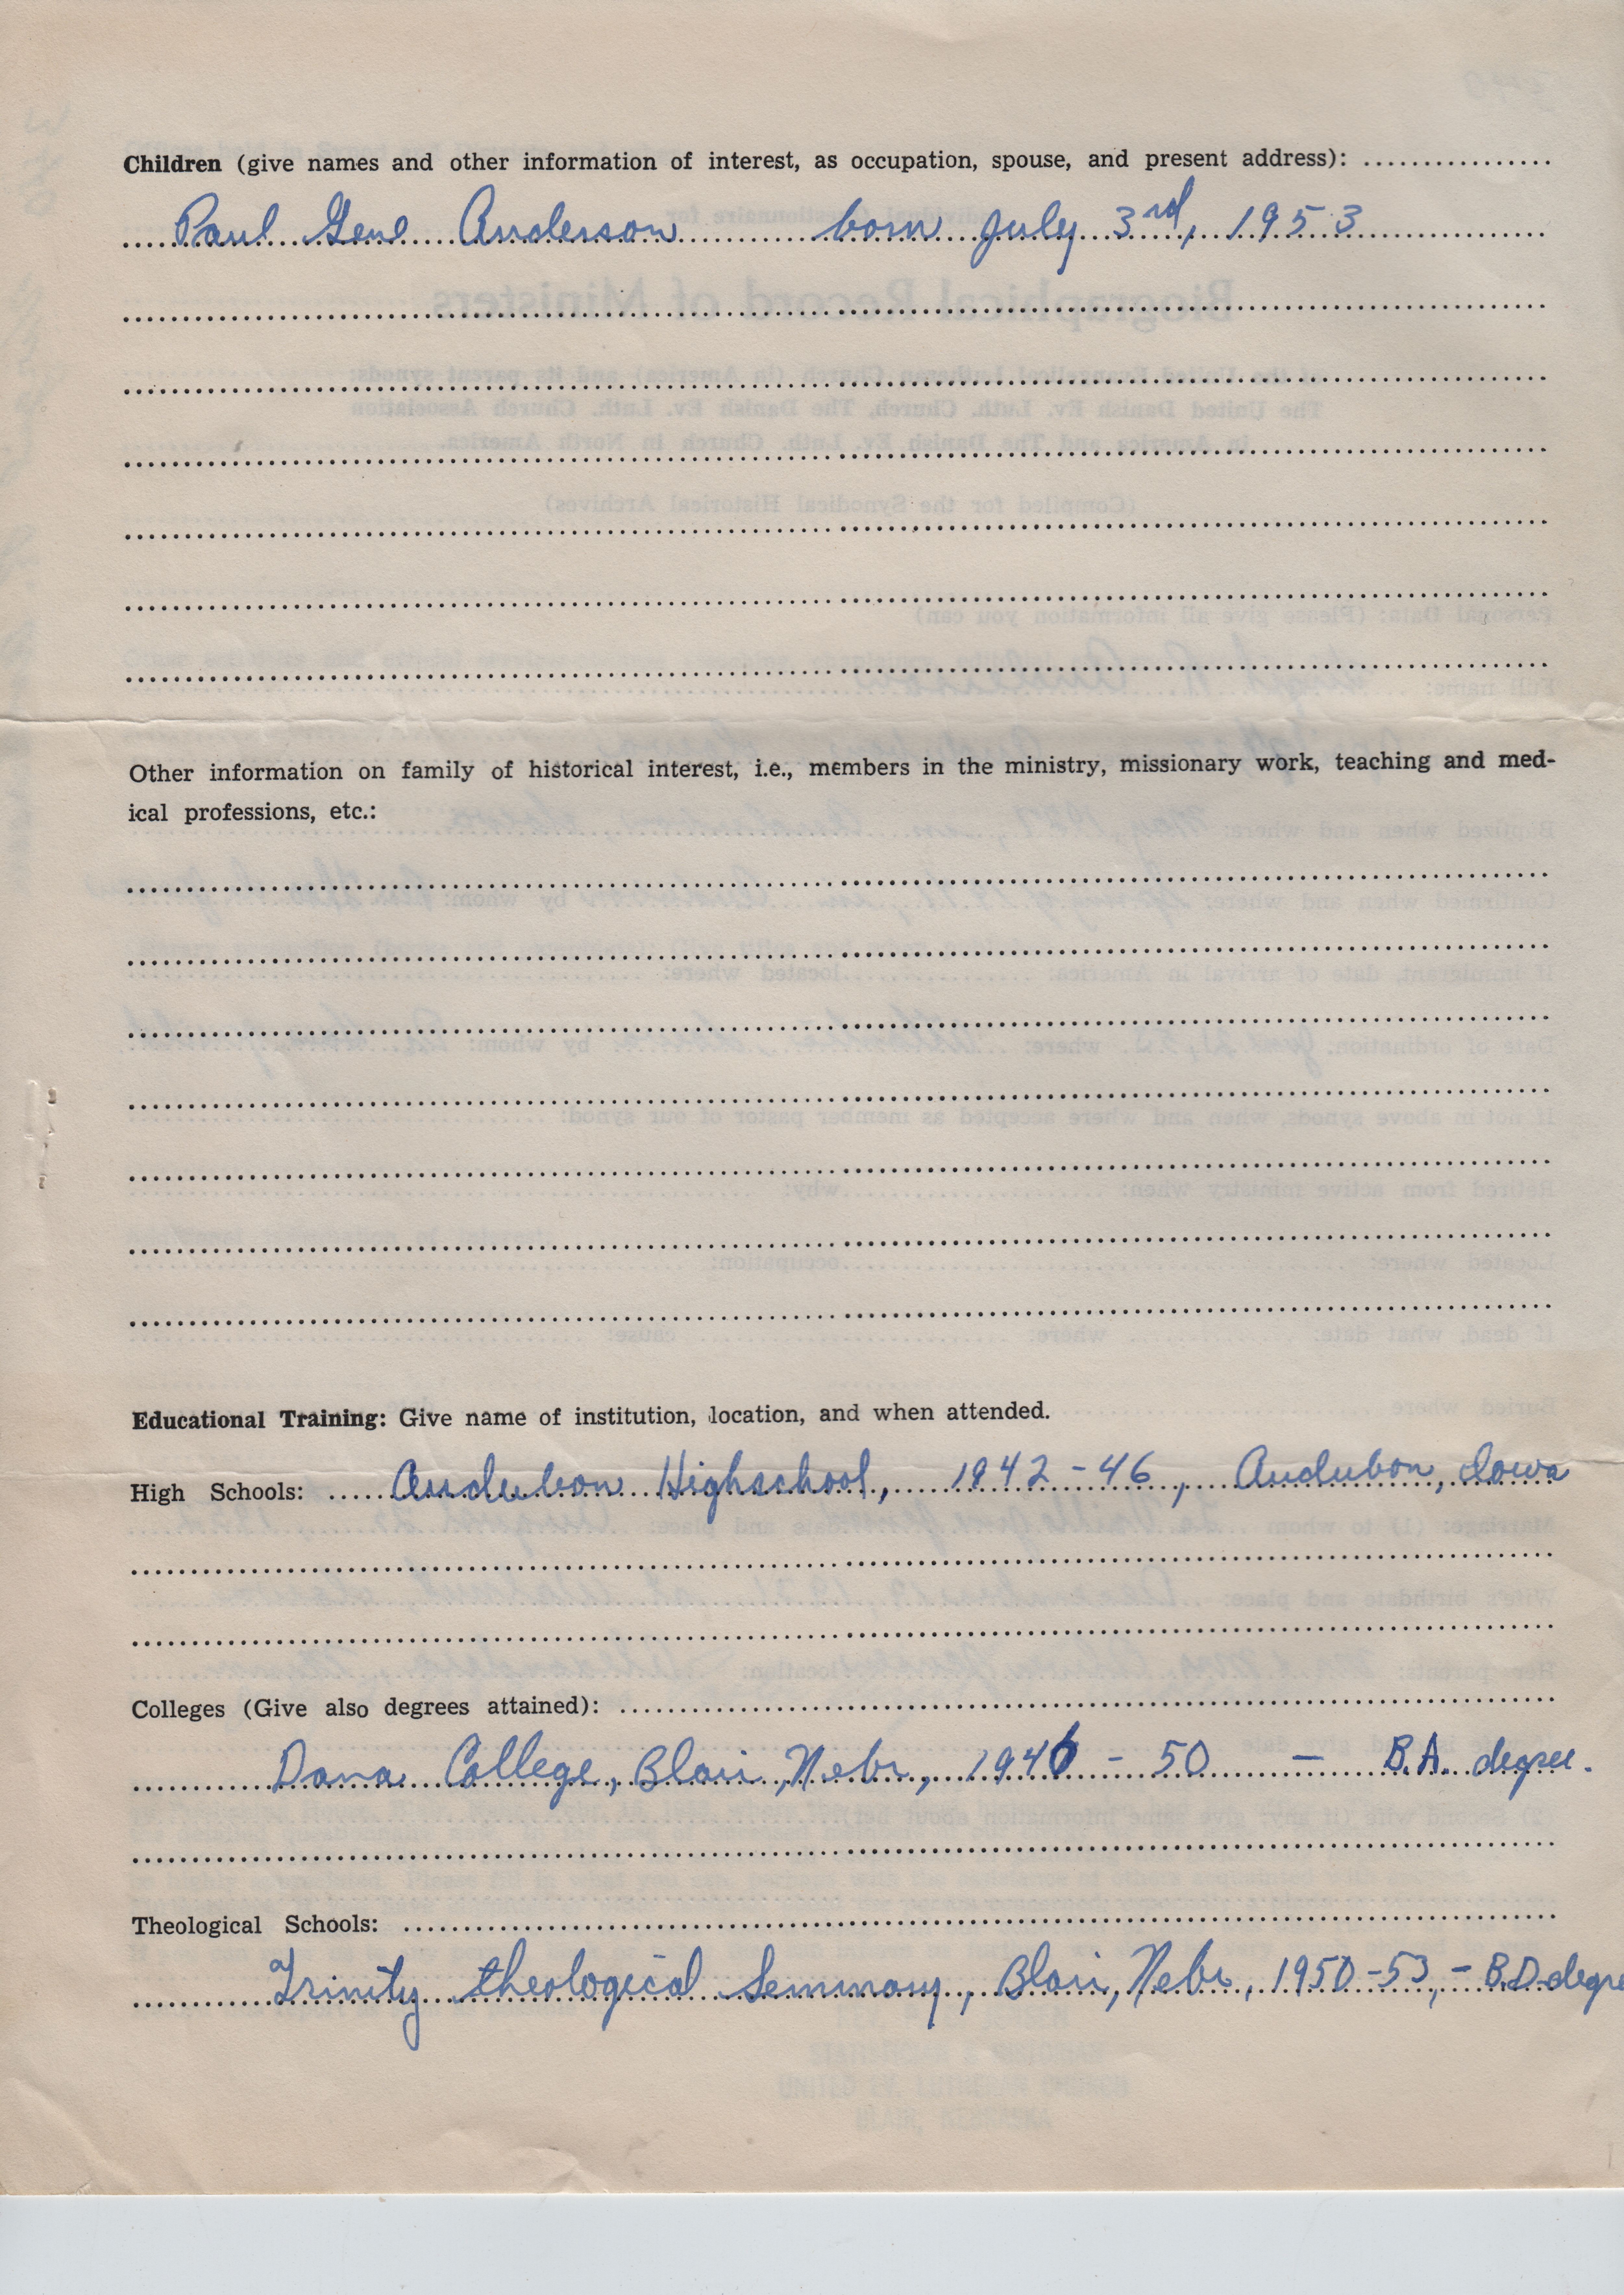 Children (give names and other information of interest, as occupation, spouse, and present address):
Paul Gene Anderson born July 3rd, 1953
Other information on family of historical interest, i.e., members in the ministry, missionary work, teaching and med-
ical professions, etc.:
Educational Training: Give name of institution, location, and when attended.
High Schools: Audubon Highschool, 1942-46, Audubon, Iowa
Colleges (Give also degrees attained):
Dana College, Blair, Nebr, 1946 - 50 - B.A. degree.
Theological Schools:
Trinity theological Seminary, Blair, Nebr, 1950-53, - B.D. degre